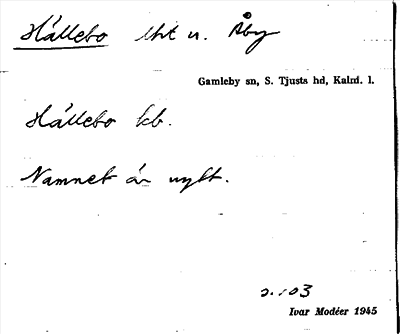 Hällebo lht u. Åby
Gamleby sn, S. Tjusts hd, Kalm. l.
Hällebo kb.
Namnet är nytt.
s. 103
Ivar Modéer 1945